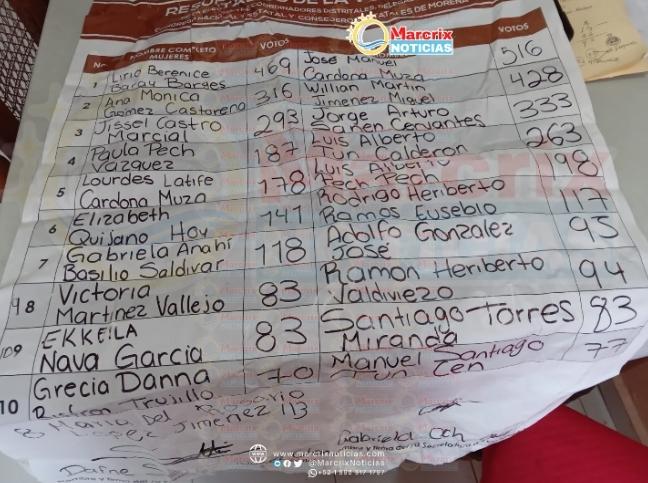 RESULTADO DE LA
COORDINADORES DISTRITALES,
CONGRESO NACIONAL Y ESTATAL Y CONSEJEROS ESTATALES DE MORENA
Marcrix
NOTICIAS
No. NOMBRE COMPLETO MUJERES VOTOS VOTOS
1 Lirio Berenice Baray Borges 469 José Manuel Cardona Muza 516
2 Ana Monica Gomez Castarena 316 Willian Martin Jimenez Miguel 428
3 Jissel Castro Marcial 293 Jorge Arturo Sanen Cervantes 333
4 Paula Pech Vazquez 187 Luis Alberto Tun Calderon 263
5 Lourdes Latife Cardona Muza 178 Luis Alberto Pech Pech 198
6 Elizabeth Quijano Hov 141 Rodrigo Heriberto Ramos Eusebio 117
7 Gabriela Anahi Basilio Saldivar 118 Adolfo Gonzalez José 95
9 8 Victoria Martinez Vallejo 83 Ramon Heriberto Valdiviezo 94
10 9 EKKEILA Nava Garcia 83 Santiago Torres Miranda 83
10 Grecia Danna Trujillo 70 Manuel Santiago Tun Cen 77
8 Maria Del Rosario Jimenez 113
Dafne
Gabriela Och
www.marcrixnoticias.com
@MarcrixNoticias